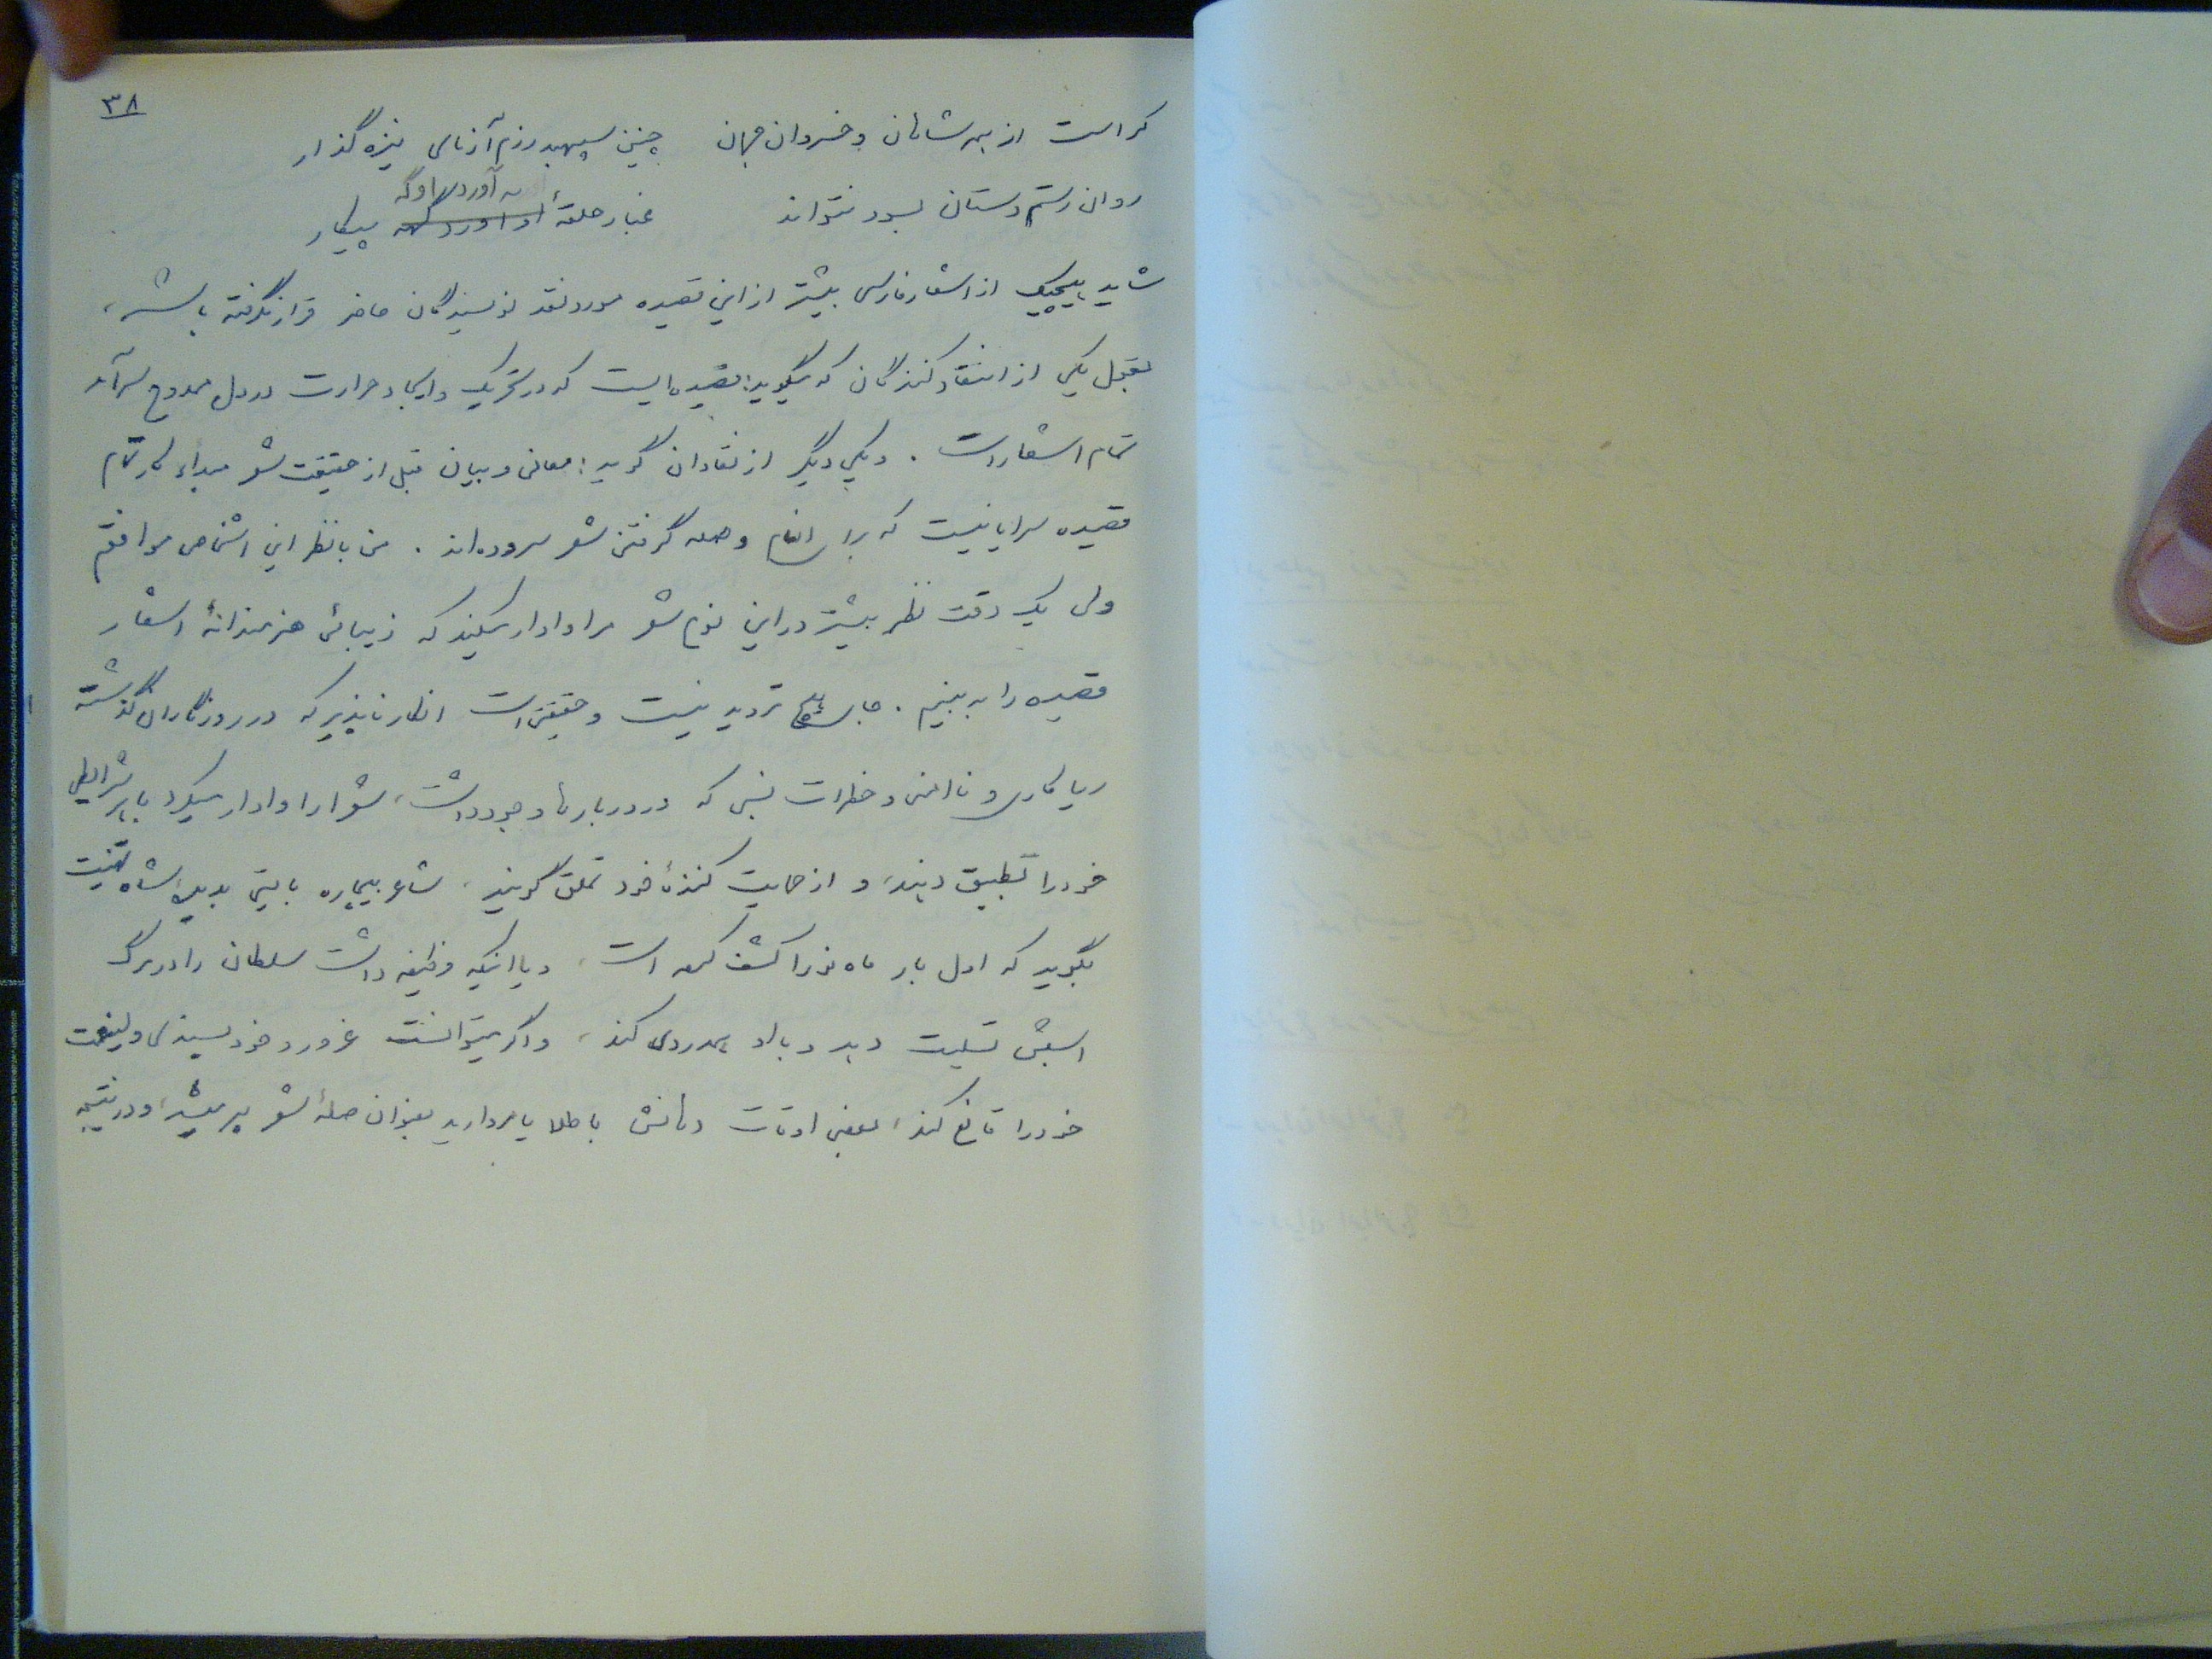 ۳۸
کراست از همه شاهان و خسروان جهان چنین سپهبد رزم آزمای نیزه گذار
روان رستم دستان بسود نتواند غبار حلقهٔ به آوردگاه پیکار
شاید هیچیک از اشعار فارسی بیشتر از این قصیده مورد نقد نویسندگان حاضر قرار نگرفته باشد،
بقول یکی از انتقاد کنندگان که میگوید: قصیده ایست که در تحریک و ایجاد حرارت در دل ممدوح سرآمد
تمام اشعار است. و یکی دیگر از نقادان گوید: معانی و بیان قبل از حقیقت شعر مبداء کار تمام
قصیده سرایانیست که برای انعام و صله گرفتن شعر سروده‌اند. من با نظر این اشخاص موافقم
ولی یک دقت نظر بیشتر در این نوع شعر مرا وادار میکند که زیبائی هنرمندانهٔ اشعار
قصیده را به بینیم. جای هیچ تردید نیست و حقیقتی است انکار ناپذیر که در روزگاران گذشته
ریا کاری و ناامنی و خطرات نسبی که در دربارها وجود داشت، شعرا را وادار میکرد با هر شرایطی
خود را تطبیق دهند، و از حمایت کنندهٔ خود تملق گویند، شاعر بیچاره بایستی بدیهةً شاه تهنیت
بگوید که اول بار ماه نو را کشف کرده است، و یا اینکه وظیفه داشت سلطان را در مرگ
اسبش تسلیت دهد و با او همدردی کند، و اگر میتوانست غرور و خود پسندی ولینعمت
خود را قانع کند، بعضی اوقات دهانش با طلا یا مروارید بعنوان صلهٔ شعر پر میشد، و در نتیجه